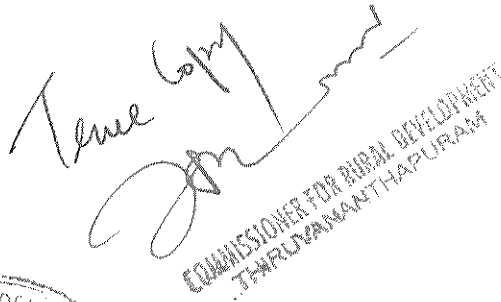 True Copy
COMMISSIONER FOR RURAL DEVELOPMENT
THIRUVANANTHAPURAM